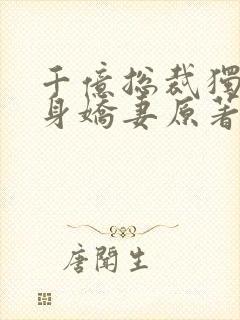 千億總裁獨
身嬌妻原著
唐聞生